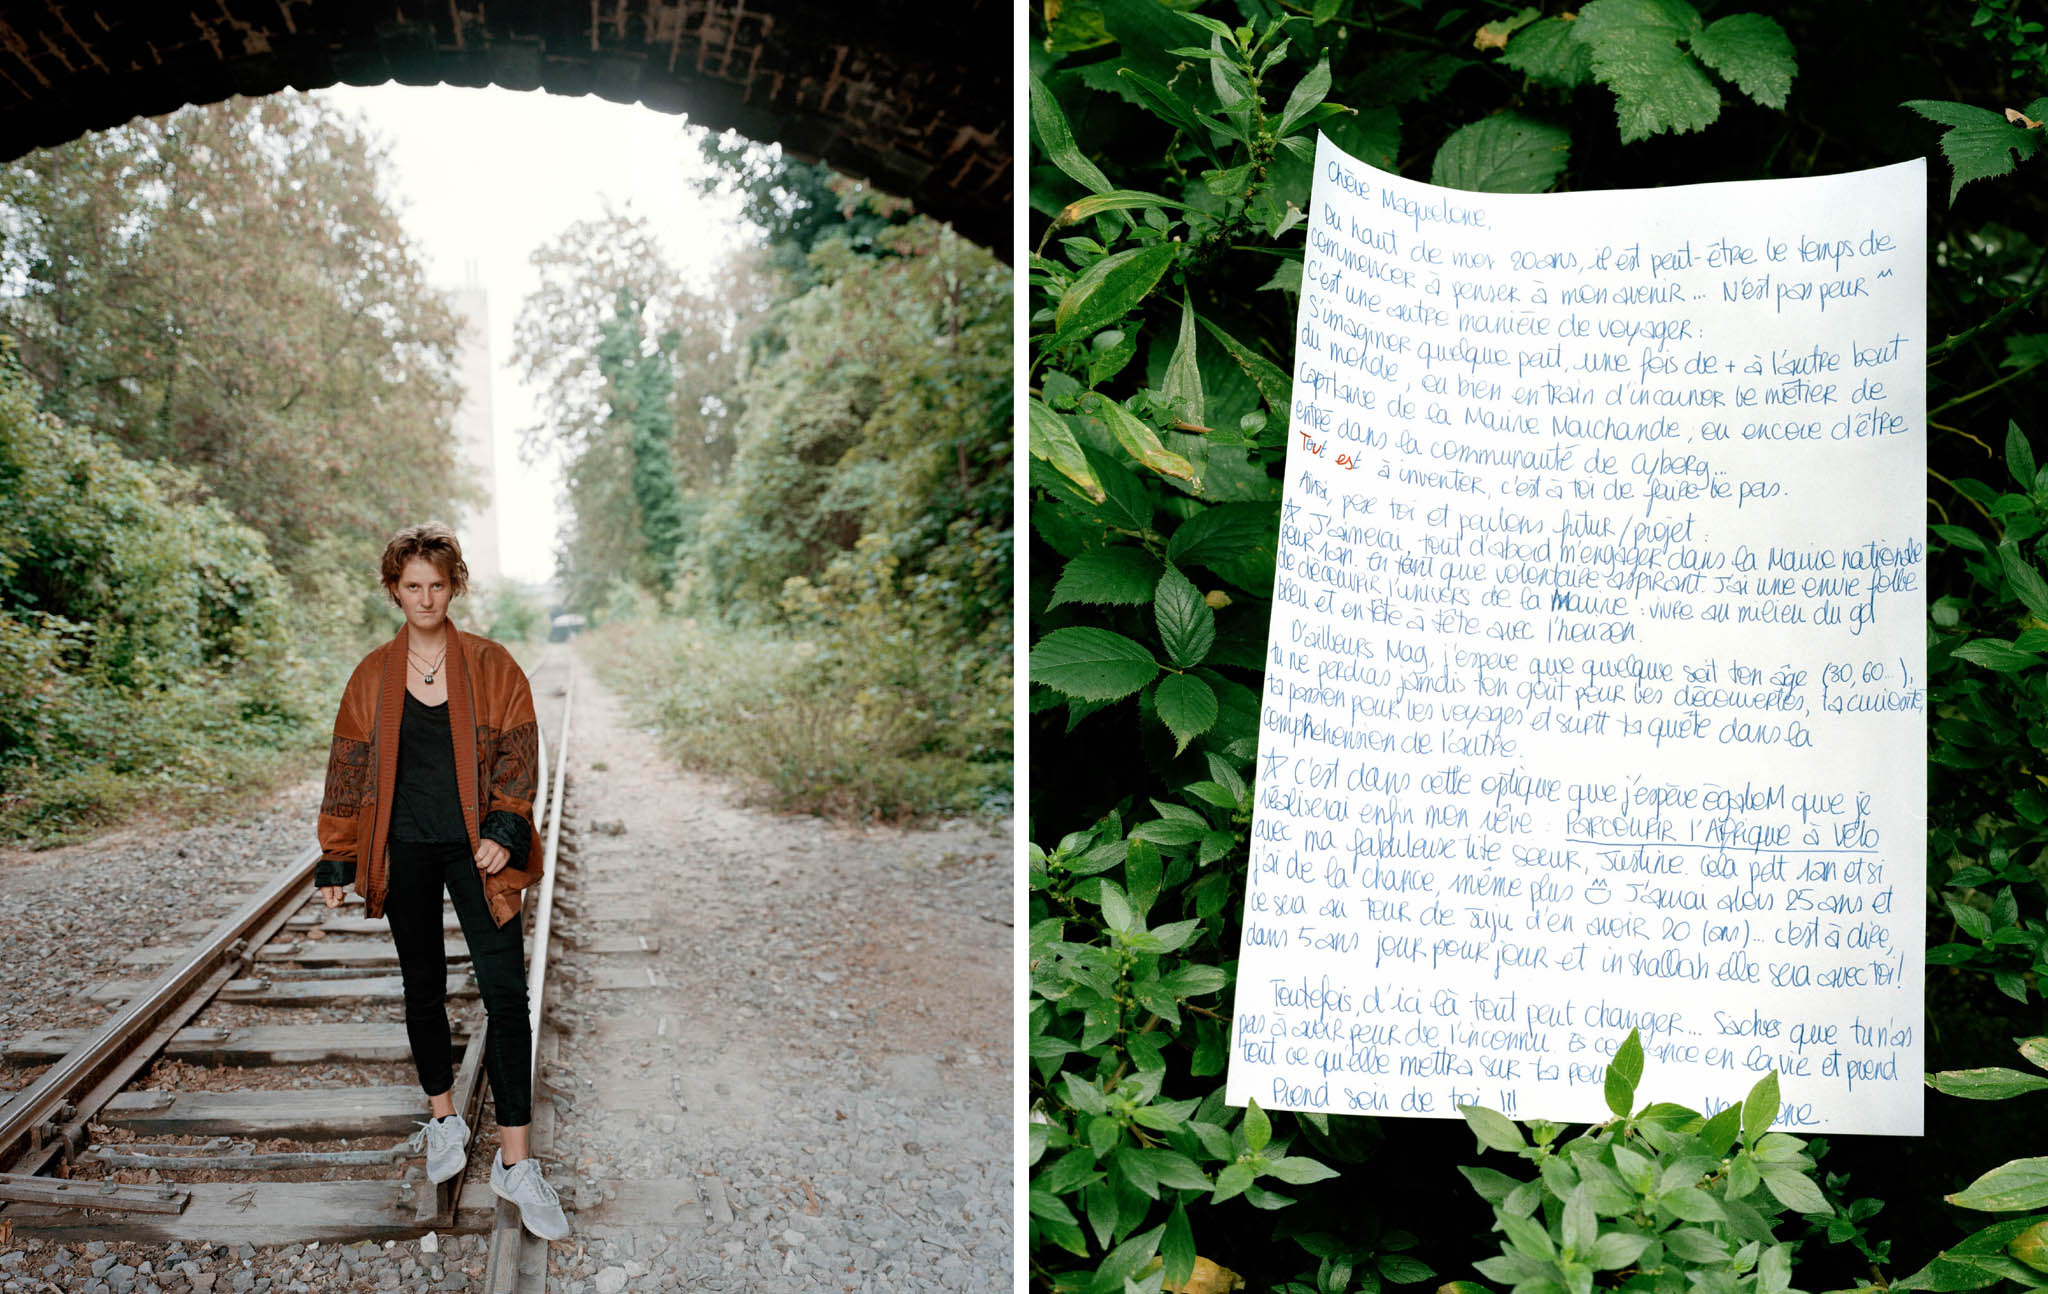 Chère Maguelone,
Du haut de mes 20 ans, il est peut-être le temps de
commencer à penser à mon avenir... N'est pas peur ^^
C'est une autre manière de voyager :
S'imaginer quelque part, une fois de + à l'autre bout
du monde, ou bien en train d'incarner le métier de
capitaine de la Marine Marchande, ou encore d'être
entré dans la communauté de cyborg...
Tout est à inventer, c'est à toi de faire le pas.
Ainsi, pose toi et parlons futur/projet :
☆ J'aimerai, tout d'abord m'engager dans la Marine nationale
pour 1 an. En tant que volontaire aspirant. J'ai une envie folle
de découvrir l'univers de la Marine : vivre au milieu du gd
bleu et en tête à tête avec l'horizon.
D'ailleurs Mag, j'espère que quelque soit ton âge (30, 60...),
tu ne perdras jamais ton goût pour les découvertes, ta curiosité,
ta passion pour les voyages et surtt ta quête dans la
compréhension de l'autre.
☆ C'est dans cette optique que j'espère égaleM que je
réaliserai enfin mon rêve : PARCOURIR l'AFRIQUE à Vélo
avec ma fabuleuse tite soeur, Justine. Cela pdt 1 an et si
j'ai de la chance, même plus J'aurai alors 25 ans et
ce sera au tour de Juju d'en avoir 20 (ans)... c'est à dire,
dans 5 ans jour pour jour et inshallah elle sera avec toi!
Toutefois, d'ici là tout peut changer... Saches que tu n'as
pas à avoir peur de l'inconnu. Es confiance en la vie et prend
tout ce qu'elle mettra sur ta
Prend soin de toi !!!